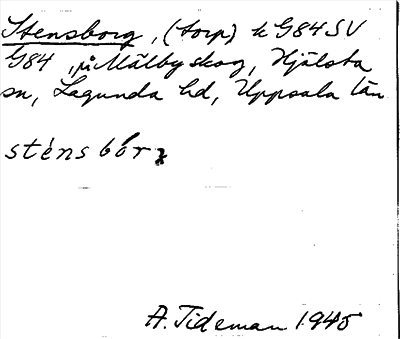 Stensborg, (torp) k G84SV
G84, på Mälby skog, Hjälsta
sn, Lagunda hd, Uppsala län
sténsbórʒ
A. Tideman 1945